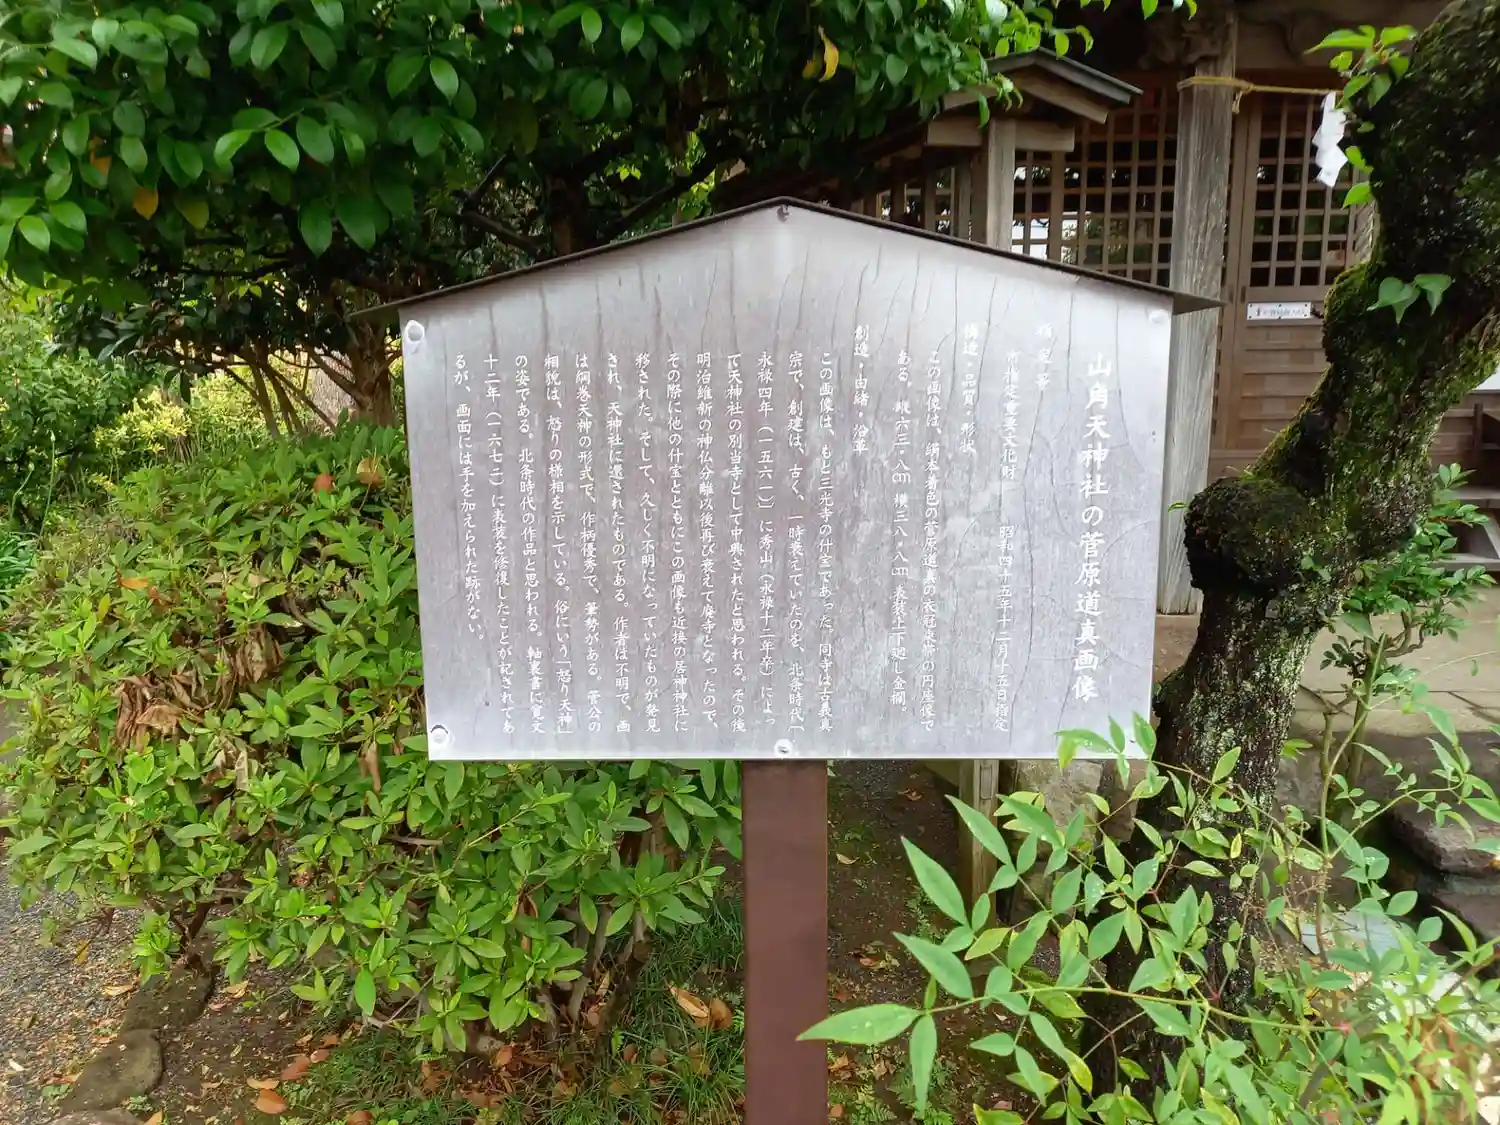 山角天神社の菅原道真画像
指定等
市指定重要文化財 昭和四十五年十二月十五日指定
構造・品質・形状
この画像は、絹本着色の菅原道真の衣冠束帯の円座像で
ある。縦六三・八㎝ 横三八・八㎝ 表装上下廻し金襴。
創造・由緒・沿革
この画像は、もと三光寺の什宝であった。同寺は古義真
宗で、創建は、古く、一時衰えていたのを、北条時代、
永禄四年(一五六一)に秀山(永禄十二年卒)によっ
て天神社の別当寺として中興されたと思われる。その後
明治維新の神仏分離以後再び衰えて廃寺となったので、
その際に他の什宝とともにこの画像も近接の居神神社に
移された。そして、久しく不明になっていたものが発見
され、天神社に還されたものである。作者は不明で、画
は綱巻天神の形式で、作柄優秀で、筆勢がある。菅公の
相貌は、怒りの様相を示している。俗にいう「怒り天神」
の姿である。北条時代の作品と思われる。軸裏書に寛文
十二年(一六七二)に表装を修復したことが記されてあ
るが、画面には手を加えられた跡がない。